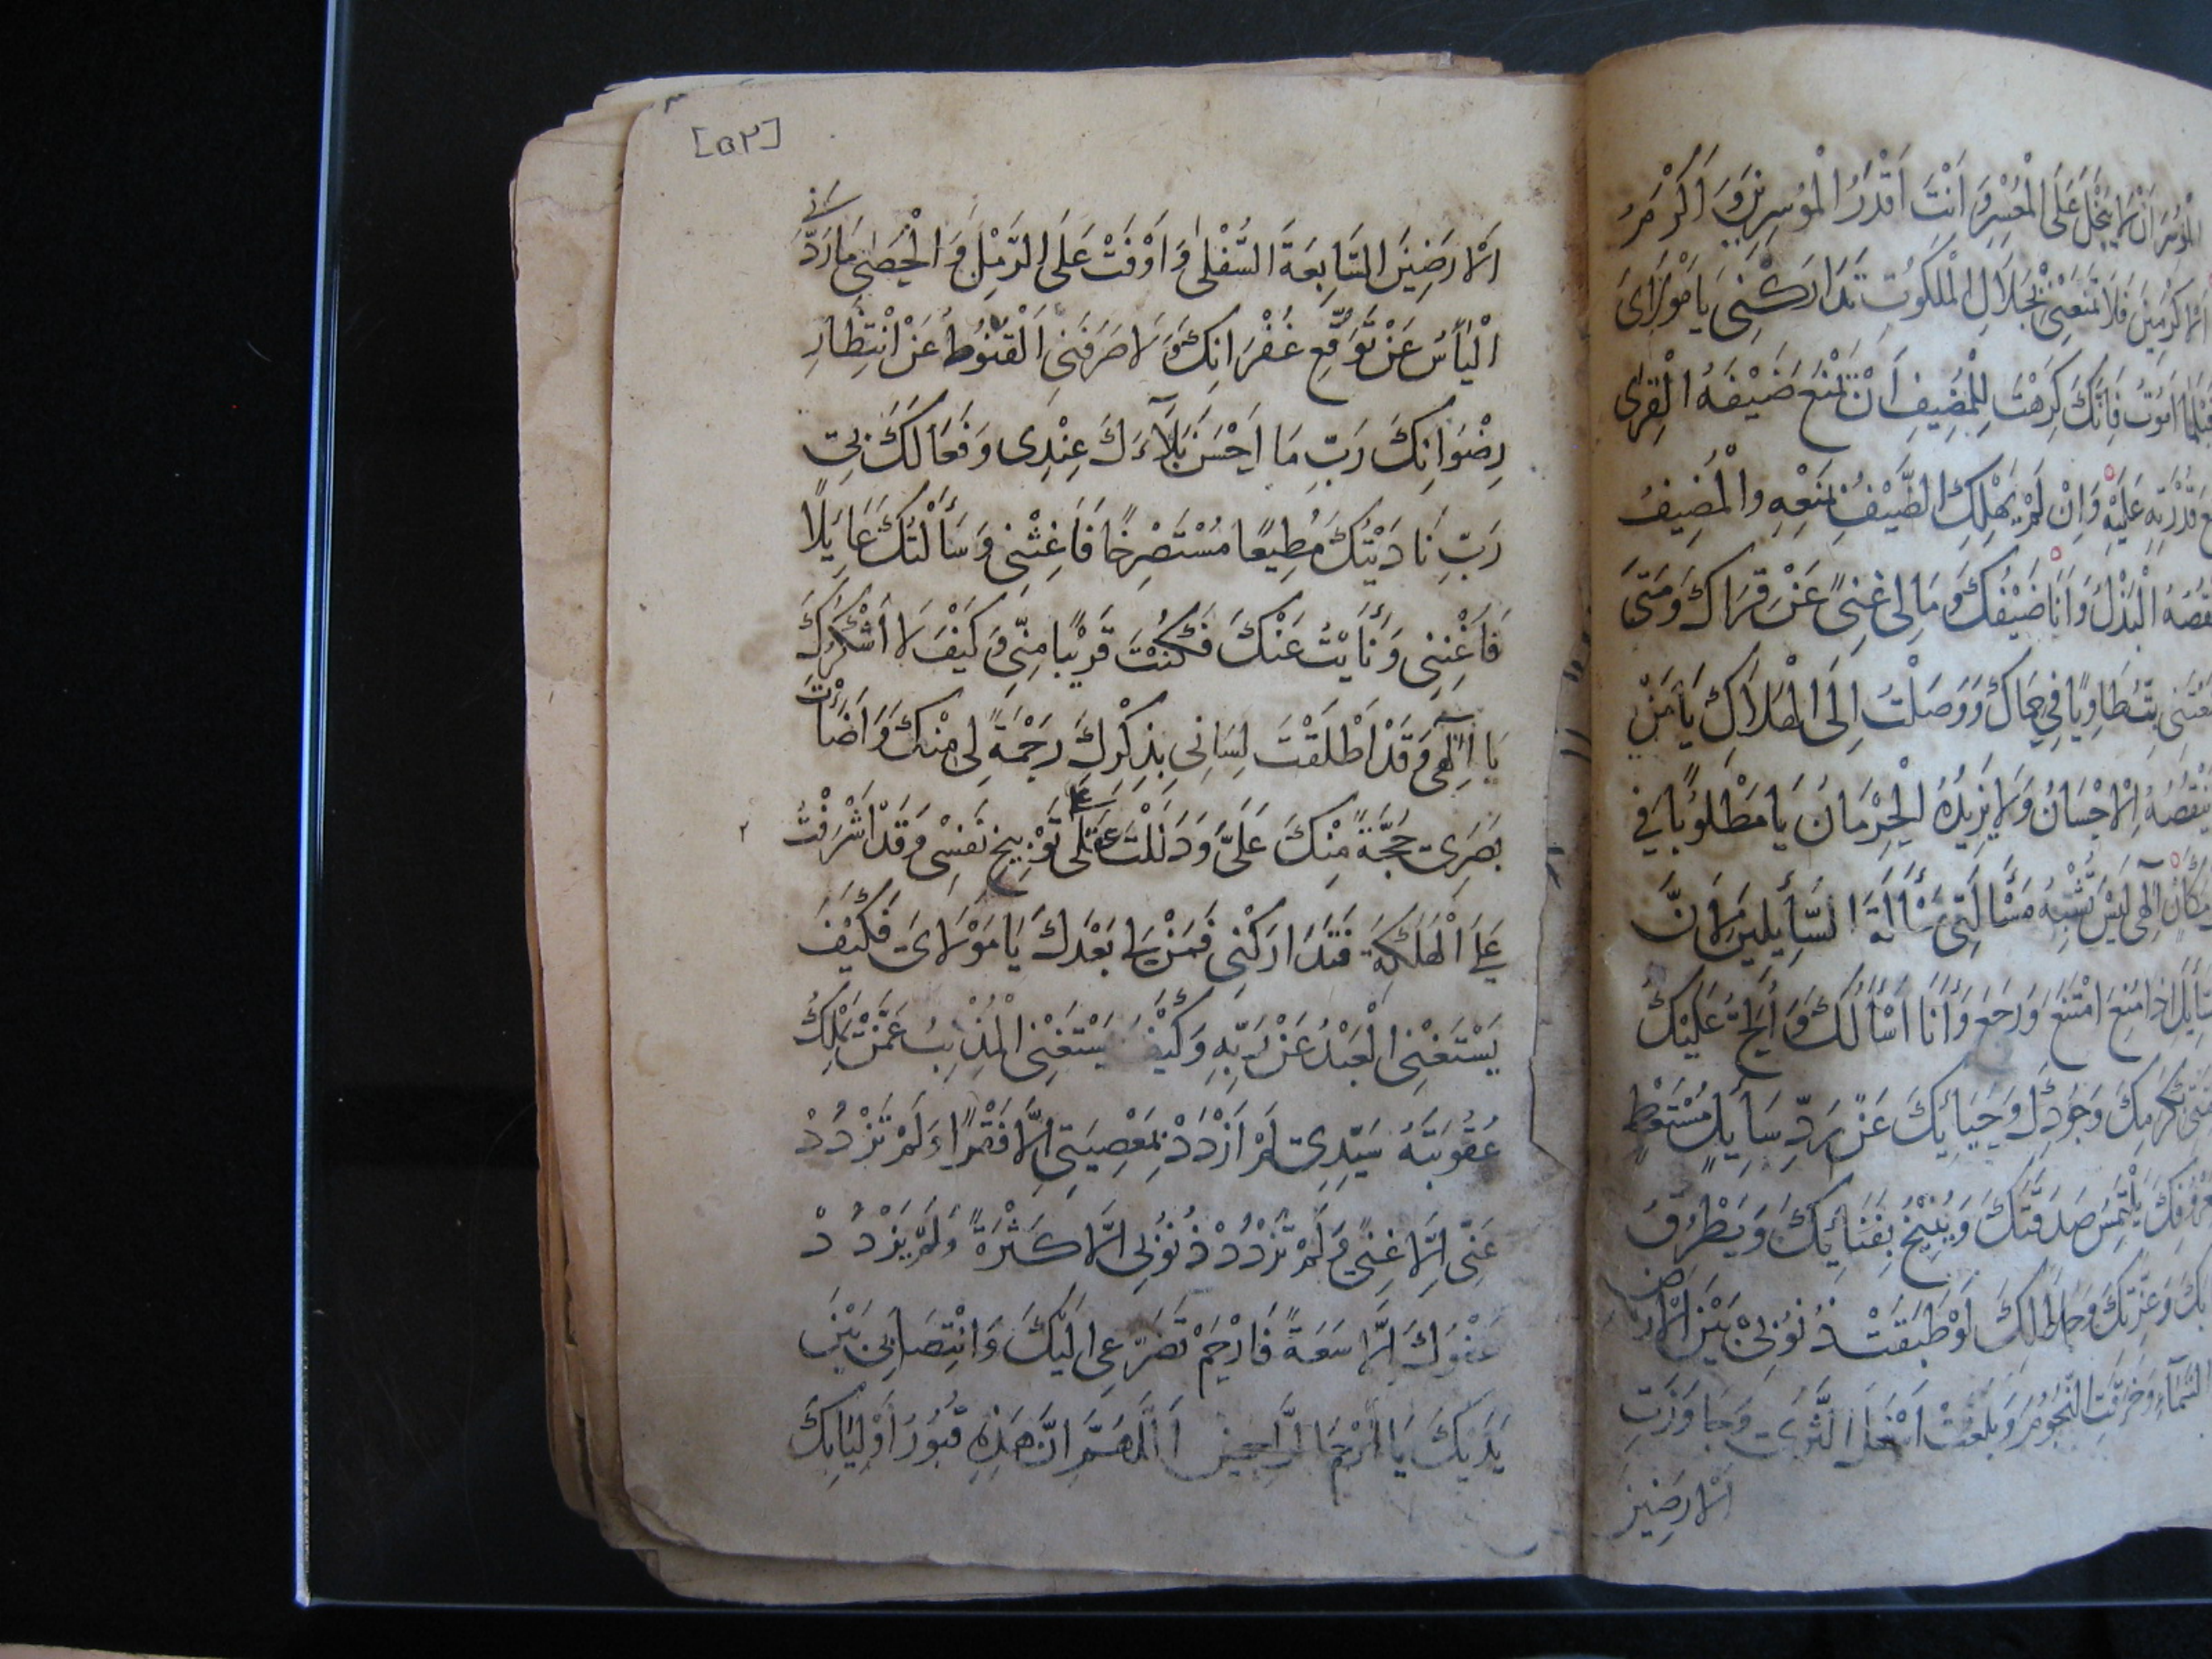 الْمُؤْسِرَ اَنْ لَا يَبْخَلَ عَلَى الْمُعْسِرِ وَ اَنْتَ اَقْدَرُ الْمُوْسِرِيْنَ وَ اَكْرَمُ
الْاَكْرَمِيْنَ فَلَا تَمْنَعْنِىْ بِجَلَالِ الْمَلَكُوْتِ تَدَارَكْنِى يَا مَوْلَاىَ
قَبْلَمَا اَمُوْتُ فَاِنَّكَ كَرِهْتَ لِلْمُضِيْفِ اَنْ يَمْنَعَ ضَيْفَهُ الْقِرٰى
مَعَ قُدْرَتِهِ عَلَيْهِ وَاِنْ لَمْ يَهْلِكِ الضَّيْفُ بِمَنْعِهِ وَالْمُضِيْفُ
الْبَذْلُ وَاَنَا ضَيْفُكَ وَ مَا لِى غِنىً عَنْ قِرَاكَ وَ مَتىٰ
مَنَعْتَنِى بِتُّ طَاوِيًا فِى حِمَاكَ وَ وَصَلْتُ اِلَى الْهَلَاكِ يَا مَنْ
يَنْقُصُهُ الْاِحْسَانُ وَلَا يَزِيْدُهُ الْحِرْمَانُ يَا مَطْلُوْبًا فِى
مَكَانٍ اِلٰهِى لَيْسَ تُشْبِهُ مَسْأَلَتِى مَسْأَلَةَ السَّائِلِيْنَ لِاَنَّ
السَّائِلَ اِذَا مُنِعَ امْتَنَعَ وَرَجَعَ وَاَنَا اَسْأَلُكَ وَ اُلِحُّ عَلَيْكَ
بِكَرَمِكَ وَجُوْدِكَ وَ حَيَائِكَ عَنْ رَدِّ سَائِلٍ مُسْتَعْطٍ
يَلْتَمِسُ صَدَقَتَكَ وَ يُنِيْخُ بِفِنَائِكَ وَ يَطْرُقُ
بَابَكَ وَ عِزَّتِكَ وَ جَلَالِكَ لَوْ طَبَّقَتْ ذُنُوْبِىْ بَيْنَ الْاَرْضِ
السَّمَاءِ وَ خَرَقَتِ النُّجُوْمَ وَ بَلَغَتْ اَسْفَلَ الثَّرٰى وَ جَاوَزَتِ
الْاَرَضِيْنَ
[٥٢]
الْاَرَضِيْنَ السَّابِعَةَ السُّفْلٰى وَ اَوْفَتْ عَلَى الرَّمْلِ وَ الْحَصٰى مَا رَدَّنِى
الْيَأْسُ عَنْ تَوَقُّعِ غُفْرَانِكَ وَ لَا صَرَفَنِى الْقُنُوْطُ عَنْ انْتِظَارِ
رِضْوَانِكَ رَبِّ مَا اَحْسَنَ بَلَآءَكَ عِنْدِى وَ فَعَالَكَ بِى
رَبِّ نَادَيْتُكَ مُطِيْعًا مُسْتَصْرِخًا فَاَغِثْنِى وَ سَأَلْتُكَ عَائِلًا
فَاَغْنِنِى وَ نَأَيْتُ عَنْكَ فَكُنْتَ قَرِيْبًا مِنِّى وَ كَيْفَ لَا اَشْكُرُكَ
يَا اِلٰهِى وَ قَدْ اَطْلَقْتَ لِسَانِى بِذِكْرِكَ رَحْمَةً لِى مِنْكَ وَ اَضَأْتَ
بَصَرِى حُجَّةً مِنْكَ عَلَىَّ وَ دَلَلْتَ عَقْلِى تَوْبِيْخِ نَفْسِى وَ قَدْ اَشْرَفْتُ ٢
عَلَى الْهَلَكَةِ فَتَدَارَكْنِى فَمَنْ لِى بَعْدَكَ يَا مَوْلَاىَ فَكَيْفَ
يَسْتَغْنِى الْعَبْدُ عَنْ رَبِّهِ وَ كَيْفَ يَسْتَغْنِى الْمُذْنِبُ عَمَّنْ يَمْلِكُ
عُقُوْبَتَهُ سَيِّدِى لَمْ اَزْدَدْ بِمَعْصِيَتِى اِلَّا فَقْرًا وَ لَمْ تَزْدَدْ
عَنِّى اِلَّا غِنىً وَ لَمْ تَزْدَدْ ذُنُوْبِى اِلَّا كَثْرَةً وَ لَمْ يَزْدَدْ
عَفْوُكَ اِلَّا سَعَةً فَارْحَمْ تَضَرُّعِى اِلَيْكَ وَ انْتِصَابِى بَيْنَ
يَدَيْكَ يَا اَرْحَمَ الرَّاحِمِيْنَ اَللّٰهُمَّ اِنَّ هٰذِهِ قُبُوْرُ اَوْلِيَائِكَ